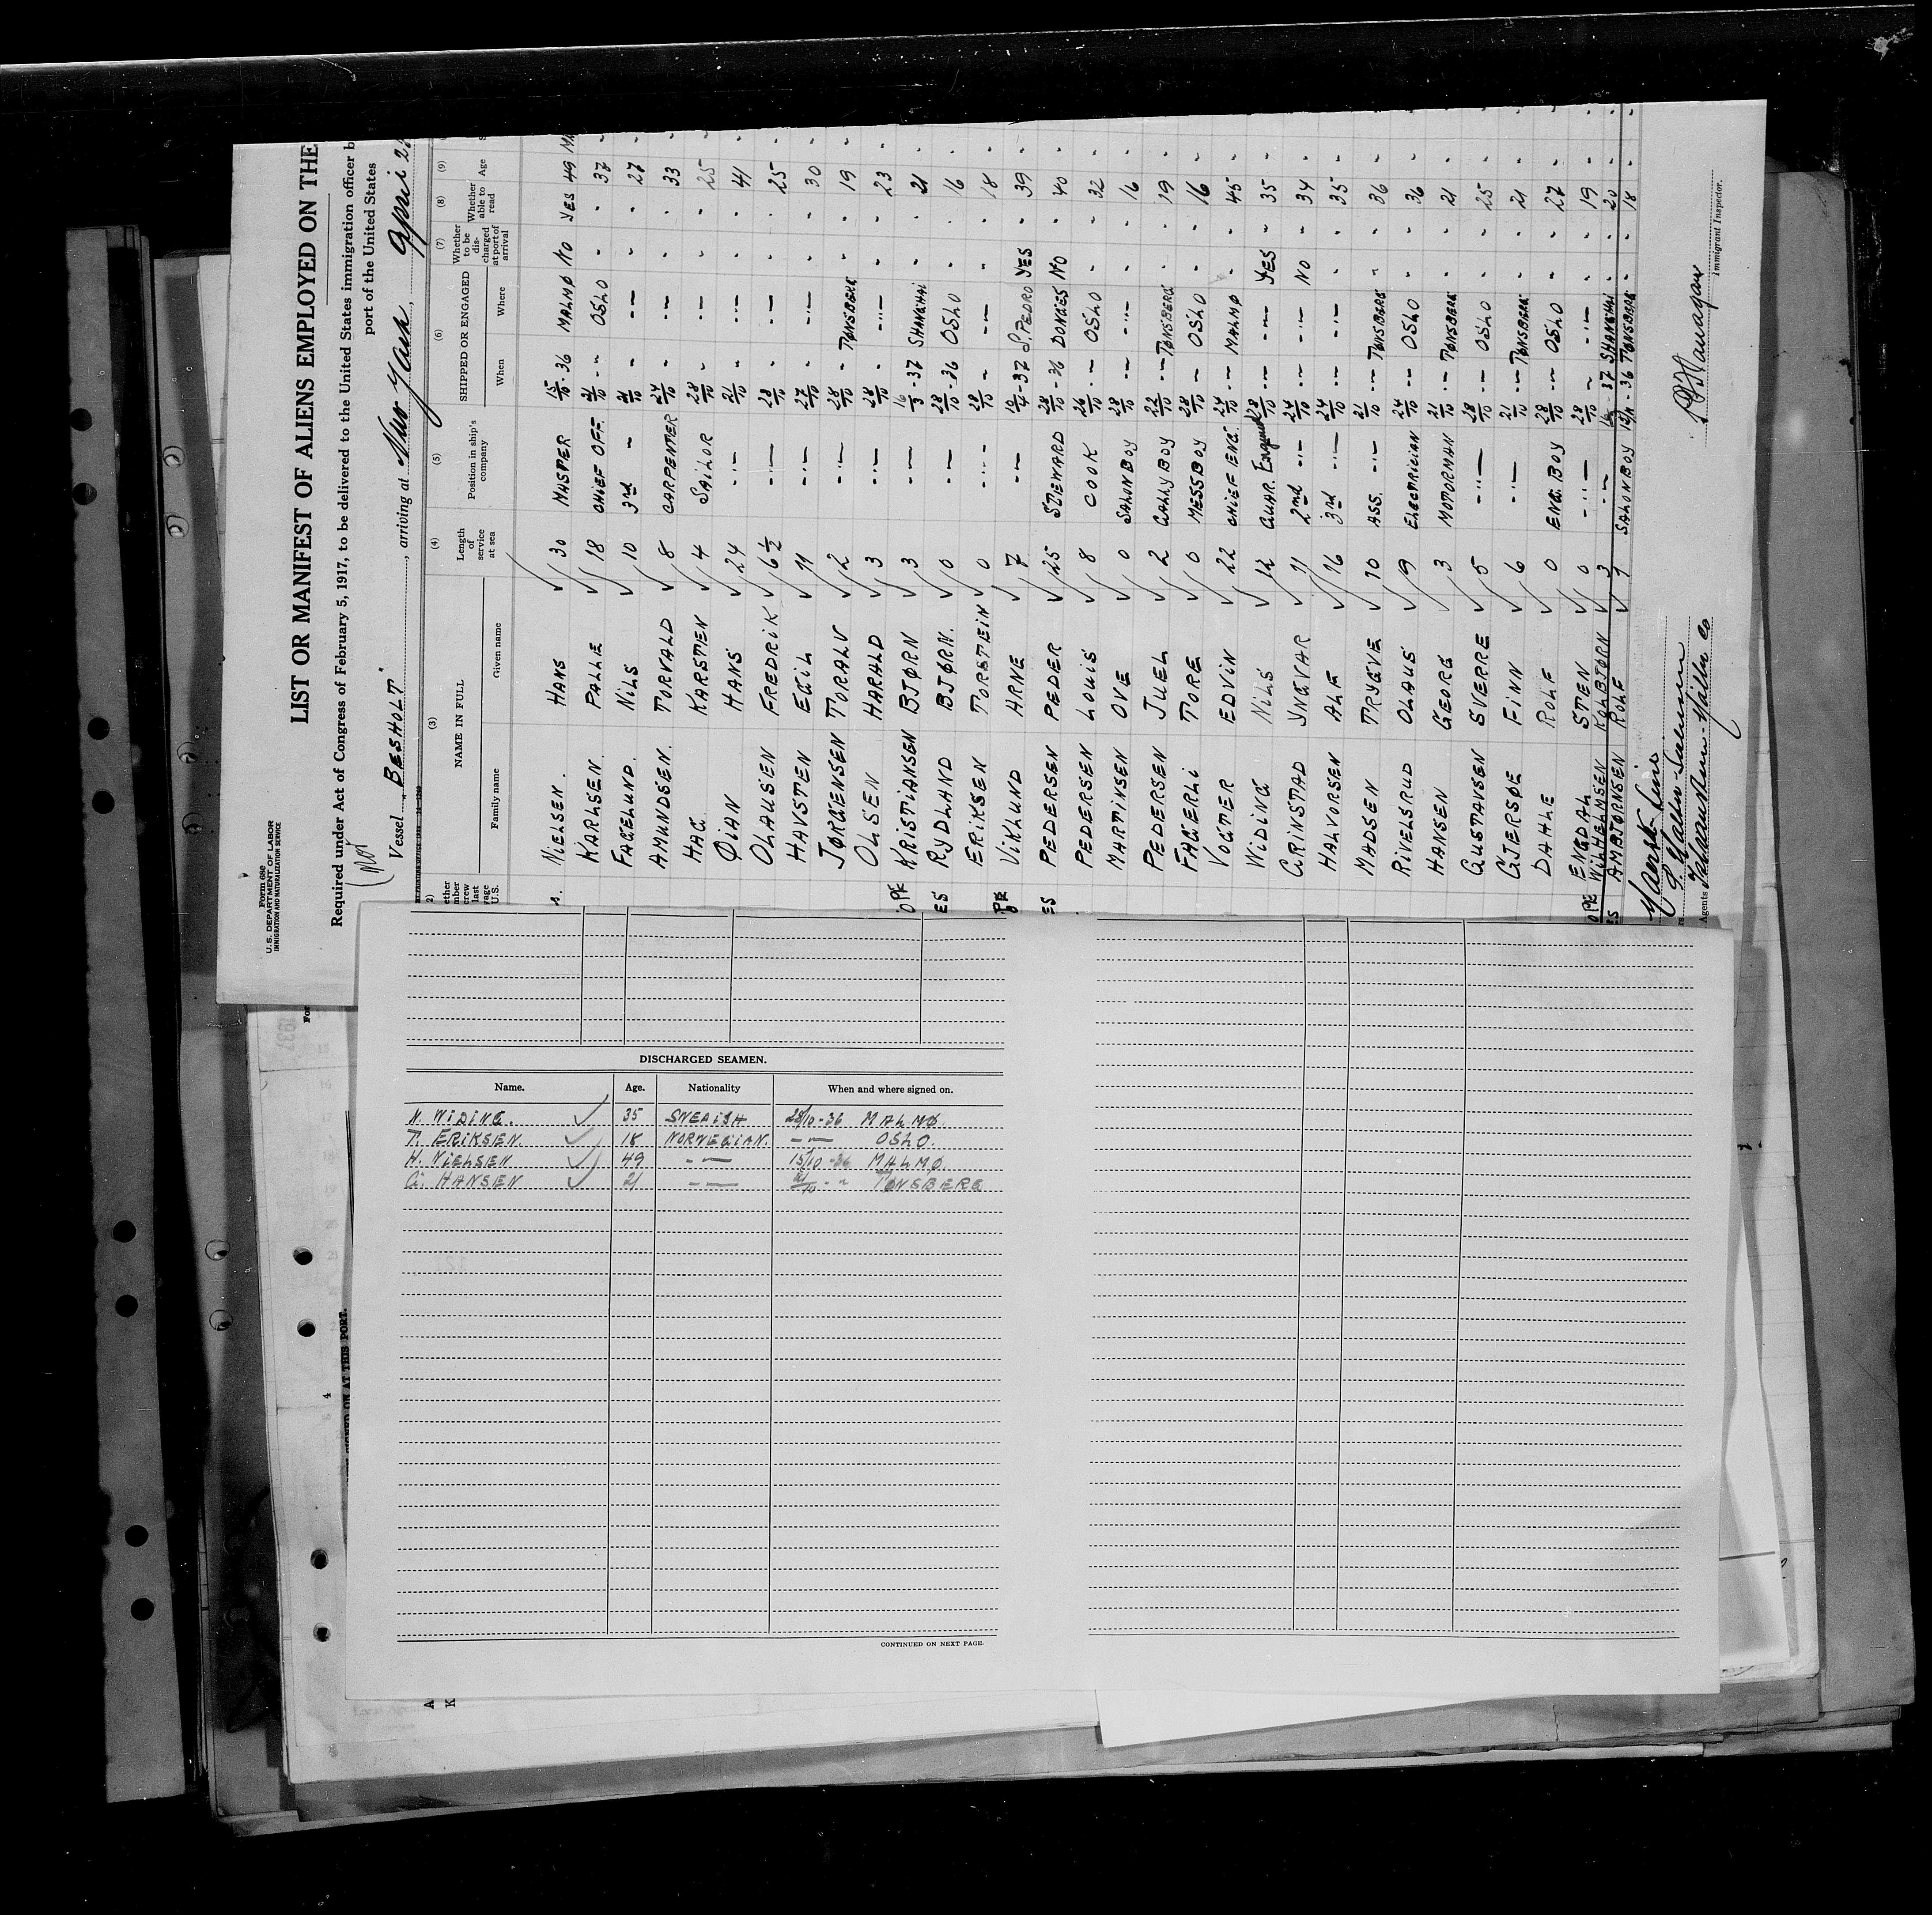 Form 680
U. S. DEPARTMENT OF LABOR
IMMIGRATION AND NATURALIZATION SERVICE
LIST OR MANIFEST OF ALIENS EMPLOYED ON THE
Required under Act of Congress of February 5, 1917, to be delivered to the United States immigration officer b
port of the United States
(Nor
Vessel BESHOLT", arriving at New York, April 2
(3) (4) (5) (6) (7) (8) (9)
NAME IN FULL Length of service at sea Position in ship's company SHIPPED OR ENGAGED Whether to be discharged at port of arrival Whether able to read Age
Family name Given name When Where
NIELSEN. HANS ✓ 30 MASTER 15/10-36 MALMØ NO YES 49 MA
KARLSEN. PALLE ✓ 18 CHIEF OFF. 21/10 -~ OSLO " " 37 "
FAGELUND. NILS ✓ 10 3rd - 21/10 - -- " " 27 "
AMUNDSEN. TORVALD ✓ 8 CARPENTER 24/10 " -- " " 33 "
HAG. KARSTEN ✓ 4 SAILOR 28/10 " -- " " 25 "
ØIAN HANS ✓ 24 -"- 21/10 " -"- " " 41 "
OLAUSEN FREDRIK ✓ 6½ -"- 28/10 " -"- " " 25 "
HAVSTEN EGIL ✓ 11 -"- 27/10 " -"- " " 30 "
JØRGENSEN TORALV ✓ 2 -"- 28/10 - TØNSBERG " " 19 "
OLSEN HARALD ✓ 3 -"- 28/10 " -"- " " 23 "
OPE KRISTIANSEN BJØRN ✓ 3 -"- 16/3-37 SHANGHAI " " 21 "
ES RYDLAND BJØRN. ✓ 0 -"- 28/10-36 OSLO " " 16 "
ERIKSEN TORSTEIN ✓ 0 -"- 28/10 " -"- " " 18 "
VIKLUND ARNE ✓ 7 -"- 10/4-37 S.PEDRO YES " 39 "
ES PEDERSEN PEDER ✓ 25 STEWARD 28/10-36 DONGES NO " 40 "
PEDERSEN LOUIS ✓ 8 COOK 26/10 -"- OSLO " " 32 "
MARTINSEN OVE ✓ 0 SALONBOY 28/10 -"- -"- " " 16 "
PEDERSEN JUEL ✓ 2 GALLYBOY 22/10 -"- TØNSBERG " " 19 "
FAGERLI TORE ✓ 0 MESSBOY 28/10 - OSLO " " 16 "
VOGTER EDVIN ✓ 22 CHIEF ENG. 24/10 -"- MALMØ " " 45 "
WIDING NILS ✓ 12 GUAR. Engineer 28/10 -"- -"- YES " 35 "
GRINSTAD YNGVAR ✓ 11 2nd -"- 24/10 -"- -"- NO " 34 "
HALVORSEN ALF ✓ 16 3rd -"- 24/10 -"- -"- " " 35 "
MADSEN TRYGVE ✓ 10 ASS. -"- 21/10 -"- TØNSBERG " " 36 "
RIVELSRUD OLAUS ✓ 9 ELECTRICIAN 24/10 -"- OSLO " " 36 "
HANSEN GEORG ✓ 3 MOTORMAN 21/10 -"- TØNSBERG " " 21 "
GUSTAVSEN SVERRE ✓ 5 -"- 28/10 -"- OSLO " " 25 "
GJERSØE FINN ✓ 6 -"- 21/10 -"- TØNSBERG " " 21 "
DAHLE ROLF ✓ 0 ENG. BOY 28/10 -"- OSLO " " 27 "
ENGDAL STEN ✓ 0 -"- 28/10 ~ -"- " " 19 "
OPE WILHELMSEN KOLBJØRN ✓ 3 -"- 16/3-37 SHANGHAI " " 20 "
ES AMBJØRNSEN ROLF ✓ 1 SALONBOY -36 TØNSBERG " " 18 "
Immigrant Inspector.
Agents
DISCHARGED SEAMEN.
Name. Age. Nationality When and where signed on.
N. WIDING. ✓ 35 SWEDISH 28/10-36 MALMØ.
T. ERIKSEN. ✓ 18 NORWEGIAN. -"- OSLO.
H. NIELSEN ✓ 49 -"- 15/10-36 MALMØ.
G. HANSEN ✓ 21 -"- 21/10 -" TØNSBERG
CONTINUED ON NEXT PAGE.